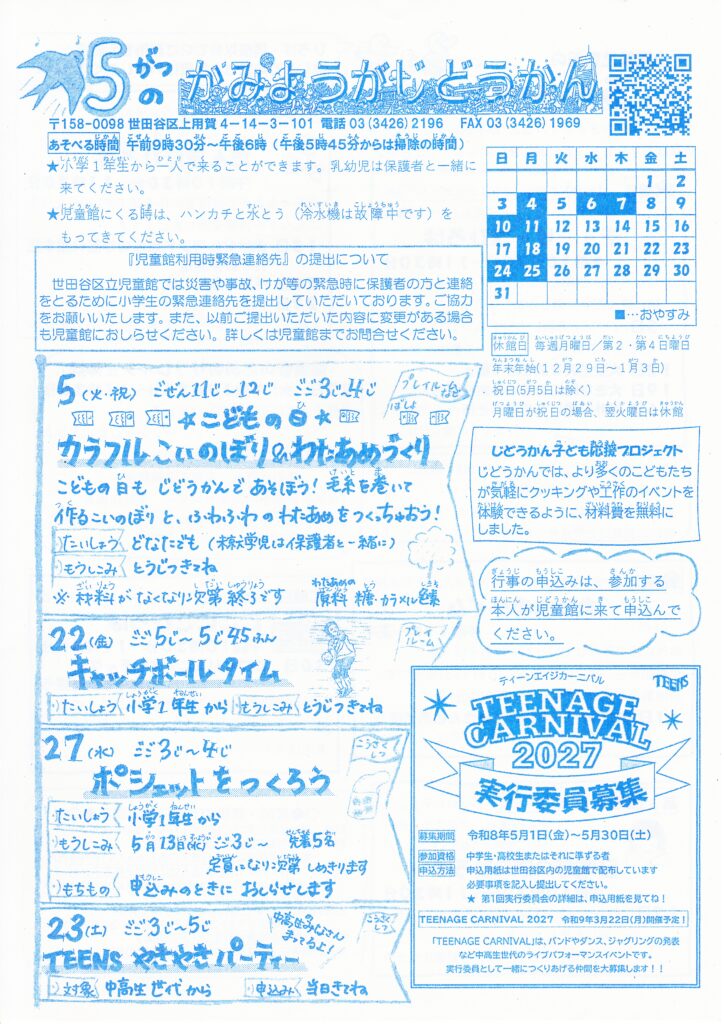 5がつの かみようがじどうかん
〒158-0098 世田谷区上用賀4-14-3-101 電話 03(3426)2196 FAX 03(3426)1969
あそべる時間 午前9時30分~午後6時(午後5時45分からは掃除の時間)
★小学1年生から一人で来ることができます。乳幼児は保護者と一緒に
来てください。
★児童館にくる時は、ハンカチと水とう(冷水機は故障中です)を
もってきてください。
『児童館利用時緊急連絡先』の提出について
世田谷区立児童館では災害や事故、けが等の緊急時に保護者の方と連絡
をとるために小学生の緊急連絡先を提出していただいております。ご協力
をお願いいたします。また、以前ご提出いただいた内容に変更がある場合
も児童館におしらせください。詳しくは児童館までお問合せください。
日 月 火 水 木 金 土
1 2
3 4 5 6 7 8 9
10 11 12 13 14 15 16
17 18 19 20 21 22 23
24 25 26 27 28 29 30
31
■…おやすみ
休館日 毎週月曜日/第2・第4日曜日
年末年始(12月29日~1月3日)
祝日(5月5日は除く)
月曜日が祝日の場合、翌火曜日は休館
5(火・祝) ごぜん11じ~12じ ごご3じ~4じ
ばしょ プレイルームなど
☆こどもの日☆
カラフルこいのぼり&わたあめづくり
こどもの日も じどうかんで あそぼう! 毛糸を巻いて
作るこいのぼりと、ふわふわの わたあめを つくっちゃおう!
たいしょう どなたでも(未就学児は保護者と一緒に)
もうしこみ とうじつきてね
※ 材料が なくなり次第 終了です わたあめの原料 糖・カラメル色素
じどうかん子ども応援プロジェクト
じどうかんでは、より多くのこどもたち
が気軽にクッキングや工作のイベントを
体験できるように、材料費を無料に
しました。
行事の申込みは、参加する
本人が児童館に来て申込んで
ください。
22(金) ごご5じ~5じ45ふん
プレイルーム
キャッチボールタイム
たいしょう 小学1年生から もうしこみ とうじつきてね
27(水) ごご3じ~4じ
こうさくしつ
ポシェットをつくろう
たいしょう 小学1年生から
もうしこみ 5月13日(水)ごご3じ~ 先着5名
定員になり次第 しめきります
もちもの 申込みのときに おしらせします
23(土) ごご3じ~5じ
中高生みなさんまってるよ!
こうさくしつ
TEENS やきやきパーティー
対象 中高生世代から 申込み 当日きてね
ティーンエイジカーニバル
TEENS
TEENAGE
CARNIVAL
2027
実行委員募集
募集期間 令和8年5月1日(金)~5月30日(土)
参加資格 中学生・高校生またはそれに準ずる者
申込方法 申込用紙は世田谷区内の児童館で配布しています
必要事項を記入し提出してください。
★ 第1回実行委員会の詳細は、申込用紙を見てね!
TEENAGE CARNIVAL 2027 令和9年3月22日(月)開催予定!
「TEENAGE CARNIVAL」は、バンドやダンス、ジャグリングの発表
など中高生世代のライブパフォーマンスイベントです。
実行委員として一緒につくりあげる仲間を大募集します!!